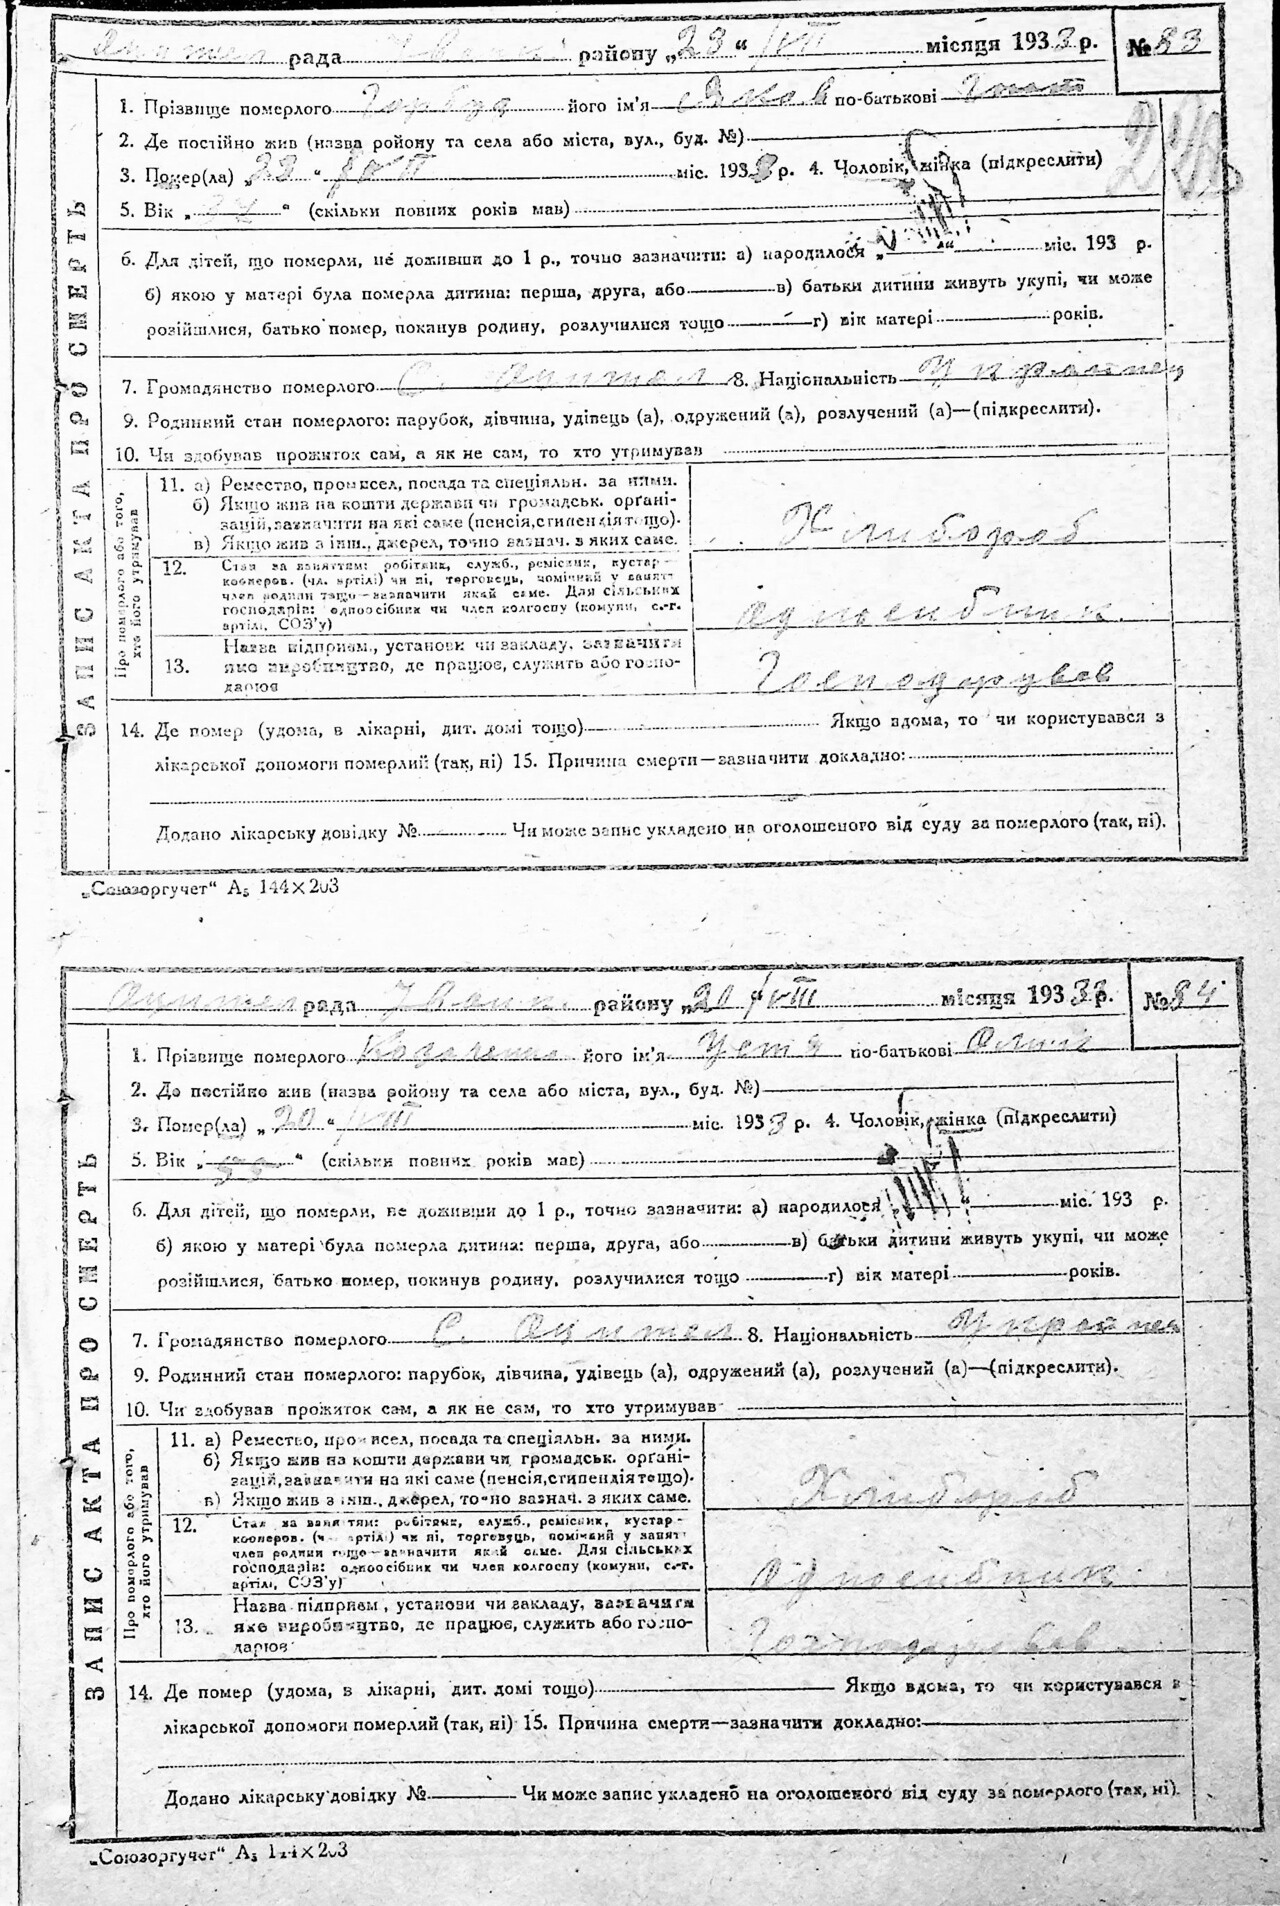 рада району „23“ VII місяця 1933 р. № 83
1. Прізвище померлого Горбуд його ім'я Яков по-батькові
2. Де постійно жив (назва району та села або міста, вул., буд. №)
3. Помер(ла) „23“ VII міс. 1933 р. 4. Чоловік, жінка (підкреслити)
5. Вік „ “ (скільки повних років мав)
6. Для дітей, що померли, не доживши до 1 р., точно зазначити: а) народилося „ “ міс. 193 р.
б) якою у матері була померла дитина: перша, друга, або в) батьки дитини живуть укупі, чи може
розійшлися, батько помер, покинув родину, розлучилися тощо г) вік матері років.
7. Громадянство померлого С. 8. Національність Украінец
9. Родинний стан померлого: парубок, дівчина, удівець (а), одружений (а), розлучений (а)—(підкреслити).
10. Чи здобував прожиток сам, а як не сам, то хто утримував
ЗАПИС АКТА ПРО СМЕРТЬ
Про померлого або того, хто його утримував
11. а) Ремество, промисел, посада та спеціяльн. за ними.
б) Якщо жив на кошти держави чи громадськ. орґані-
зацій, зазначити на які саме (пенсія, стипендія тощо).
в) Якщо жив з інш., джерел, точно зазнач. з яких саме.
Хлибороб
12. Стан за заняттям: робітник, служб., ремісник, кустар-
кооперов. (чл. артілі) чи ні, торговець, помічний у занят
член родини тощо—зазначити який саме. Для сільських
господарів: одноосібник чи член колгоспу (комуни, с.-г.
артілі, СОЗ'у)
Односибник
13. Назва підприєм., установи чи закладу, зазначити
яке виробництво, де працює, служить або госпо-
дарює
Господарував
14. Де помер (удома, в лікарні, дит. домі тощо) Якщо вдома, то чи користувався з
лікарської допомоги померлий (так, ні) 15. Причина смерти—зазначити докладно:
Додано лікарську довідку № Чи може запис укладено на оголошеного від суду за померлого (так, ні).
„Союзоргучет“ А₅ 144×203
рада району „20 VIII місяця 1933 р. № 84
1. Прізвище померлого його ім'я Устя по-батькові
2. Де постійно жив (назва району та села або міста, вул., буд. №)
3. Помер(ла) „20“ VIII міс. 1933 р. 4. Чоловік, жінка (підкреслити)
5. Вік „ “ (скільки повних років мав)
6. Для дітей, що померли, не доживши до 1 р., точно зазначити: а) народилося „ “ міс. 193 р.
б) якою у матері була померла дитина: перша, друга, або в) батьки дитини живуть укупі, чи може
розійшлися, батько помер, покинув родину, розлучилися тощо г) вік матері років.
7. Громадянство померлого С. 8. Національність
9. Родинний стан померлого: парубок, дівчина, удівець (а), одружений (а), розлучений (а)—(підкреслити).
10. Чи здобував прожиток сам, а як не сам, то хто утримував
ЗАПИС АКТА ПРО СМЕРТЬ
Про померлого або того, хто його утримував
11. а) Ремество, промисел, посада та спеціяльн. за ними.
б) Якщо жив на кошти держави чи громадськ. орґані-
зацій, зазначити на які саме (пенсія, стипендія тощо).
в) Якщо жив з інш., джерел, точно зазнач. з яких саме.
Хлиборіб
12. Стан за заняттям: робітник, служб., ремісник, кустар-
кооперов. (чл. артілі) чи ні, торговець, помічний у занят
член родини тощо—зазначити який саме. Для сільських
господарів: одноосібник чи член колгоспу (комуни, с.-г.
артілі, СОЗ'у)
Односибник
13. Назва підприєм., установи чи закладу, зазначити
яке виробництво, де працює, служить або госпо-
дарює
Господарував
14. Де помер (удома, в лікарні, дит. домі тощо) Якщо вдома, то чи користувався з
лікарської допомоги померлий (так, ні) 15. Причина смерти—зазначити докладно:
Додано лікарську довідку № Чи може запис укладено на оголошеного від суду за померлого (так, ні).
„Союзоргучет“ А₅ 144×203